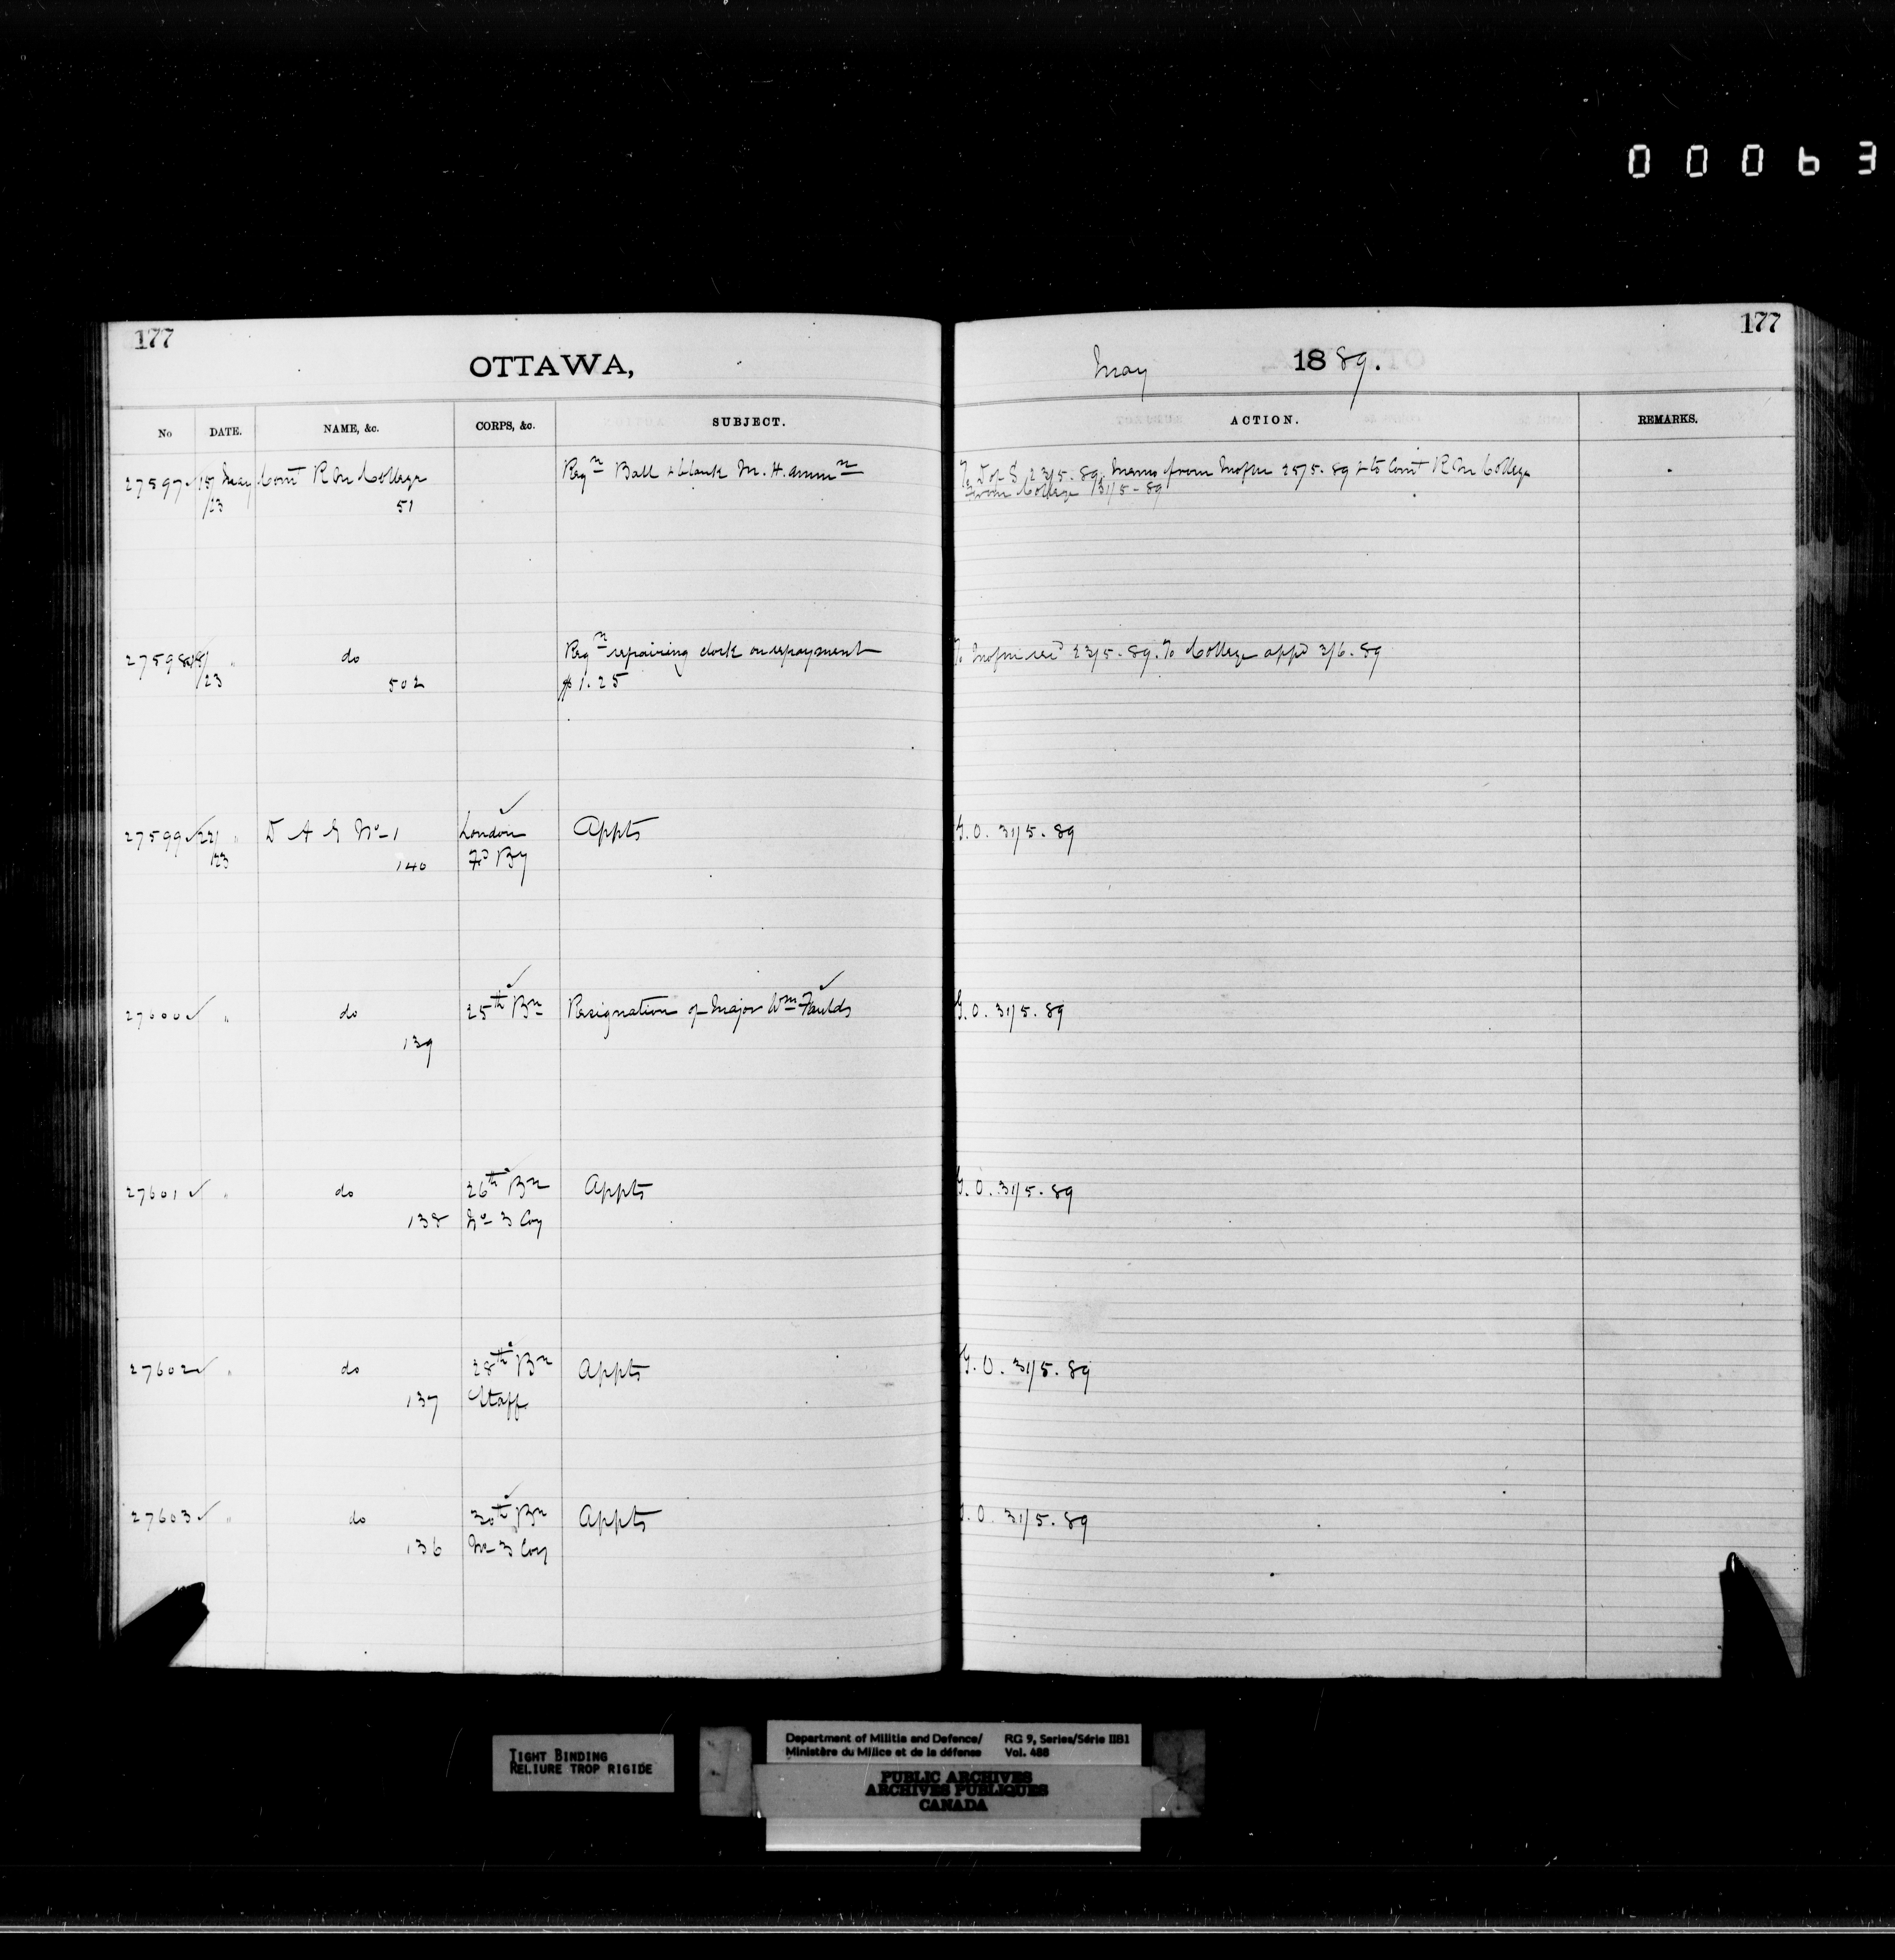 00063
177
OTTAWA,
No DATE. NAME, &c. CORPS, &c. SUBJECT.
27597 15/23 May Comt R M College 51 Reqn Ball & blank M. H. Ammn
27598 18/23 " do 502 Reqn repairing clock on repayment
$1.25
27599 22/23 " D A G No 1 140 London Fd By Appts
27600 " do 139 25th Bn Resignation of Major Wm Faulds
27601 " do 138 26th Bn No 3 Coy Appts
27602 " do 137 28th Bn Staff Appts
27603 " do 136 30th Bn No 3 Coy Appts
177
May 1889.
ACTION. REMARKS.
To D of S 23/5.89. Memo from 25/5.89 & to Comt R M College
From College 31/5-89
To 23/5.89. To College appd 3/6.89
G.O. 31/5.89
G.O. 31/5.89
G.O. 31/5.89
G.O. 31/5.89
G.O. 31/5.89
TIGHT BINDING
RELIURE TROP RIGIDE
Department of Militia and Defence/
Ministère du Milice et de la défense
RG 9, Series/Série IIB1
Vol. 488
PUBLIC ARCHIVES
ARCHIVES PUBLIQUES
CANADA